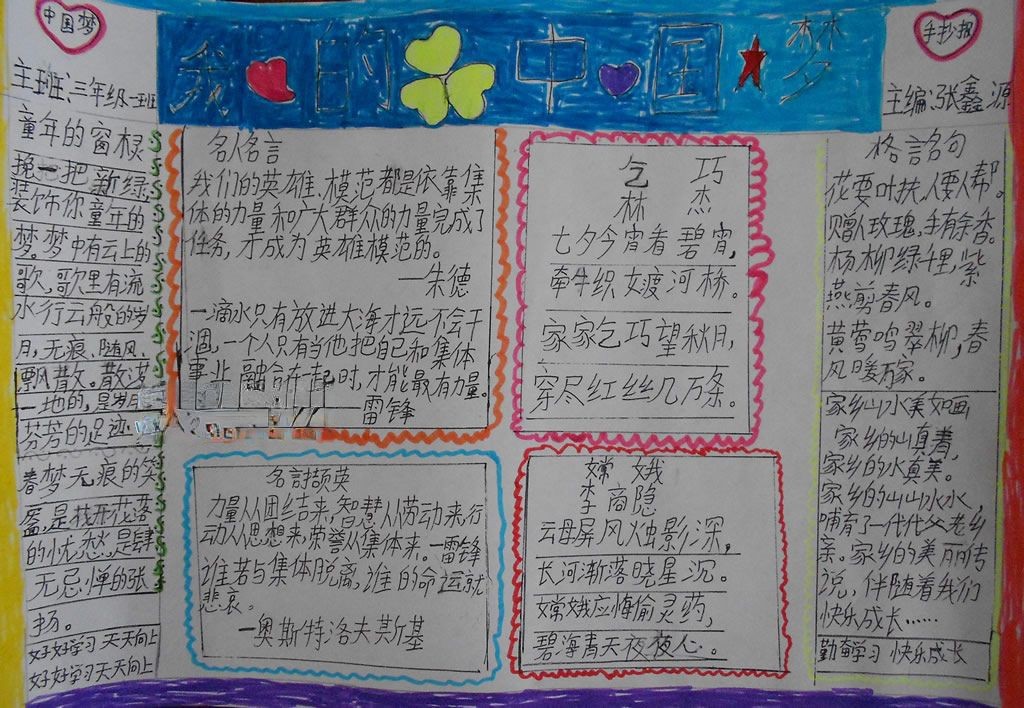 中国梦
我的中国梦
手抄报
主班:三年级一班
主编:张鑫源
童年的窗棂
挽一把新绿,
装饰你童年的
梦。梦中有云上的
歌,歌里有流
水行云般的岁
月,无痕、随风、
飘散。散落
一地的,是岁月
芬芳的足迹
春梦无痕的笑
靥,是找不花落
的忧愁,是肆
无忌惮的张
扬。
好好学习天天向上
好好学习天天向上
名人名言
我们的英雄、模范都是依靠集
体的力量和广大群众的力量完成了
任务,才成为英雄模范的。
—朱德
一滴水只有放进大海才远不会干
涸,一个人只有当他把自己和集体
事业融合在一起时,才能最有力量。
——雷锋
名言撷英
力量从团结来,智慧从劳动来,行
动从思想来,荣誉从集体来。—雷锋
谁若与集体脱离,谁的命运就
悲哀。
—奥斯特洛夫斯基
乞巧
林杰
七夕今宵看碧宵,
牵牛织女渡河桥。
家家乞巧望秋月,
穿尽红丝几万条。
嫦娥
李商隐
云母屏风烛影深,
长河渐落晓星沉。
嫦娥应悔偷灵药,
碧海青天夜夜心。
格言名句
花要叶扶,人要人帮。
赠人玫瑰,手有余香。
杨柳绿千里,紫
燕剪春风。
黄莺鸣翠柳,春
风暖万家。
家乡山水美如画
家乡的山真青,
家乡的水真美。
家乡的山山水水,
哺育了一代代父老乡
亲。家乡的美丽传
说,伴随着我们
快乐成长……
勤奋学习 快乐成长